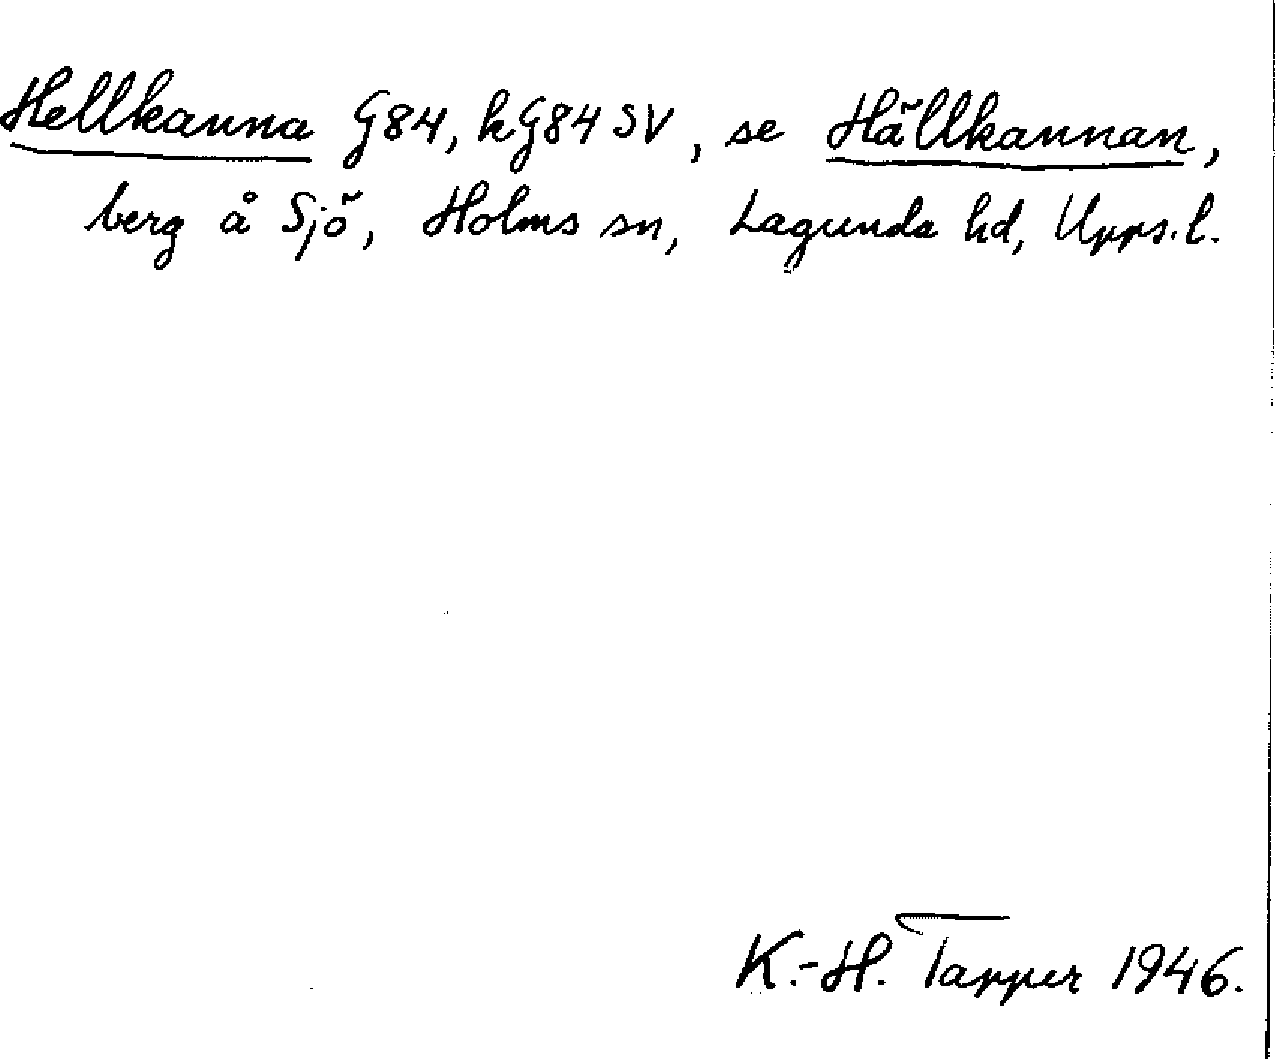 Hellkanna G84, kG84 SV, se Hällkannan,
berg å Sjö, Holms sn, Lagunda hd, Upps.l.
K.-H. Tapper 1946.